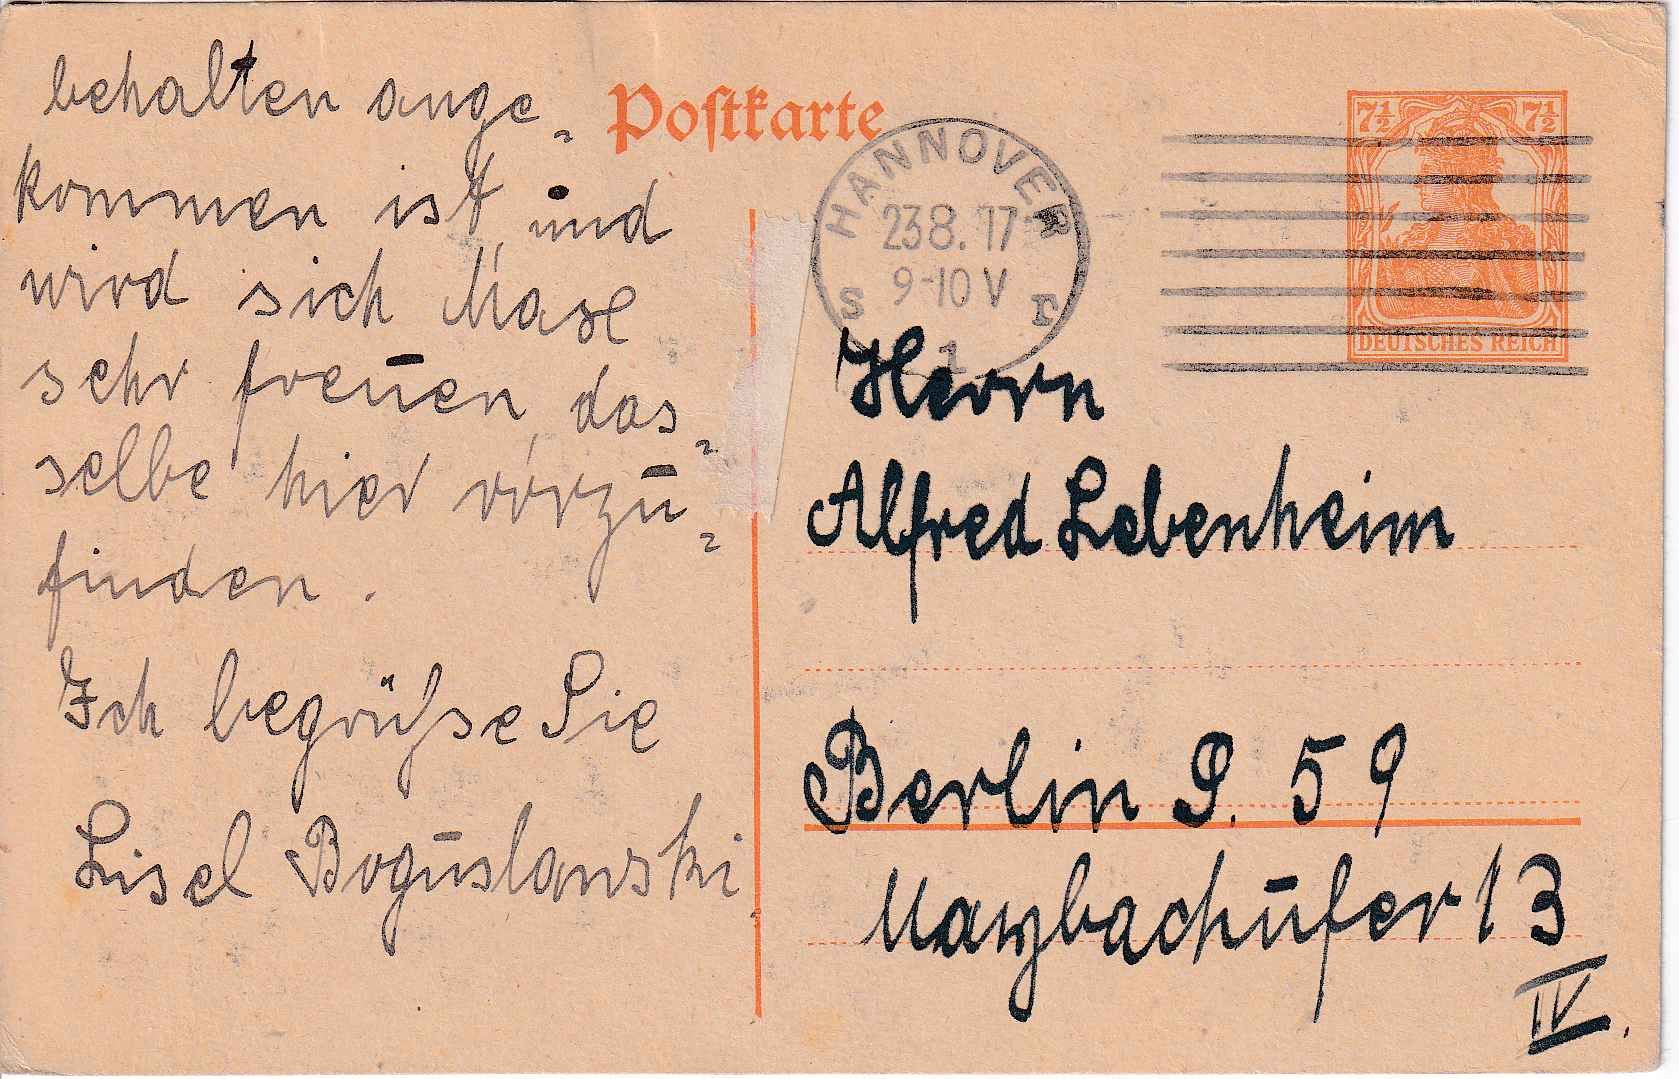 behalten ange-
kommen ist und
wird sich Maxe
sehr freuen das-
selbe hier vorzu-
finden.
Ich begrüße Sie
Lisel Boguslawski.
Postkarte
HANNOVER
23 8. 17
9-10 V
S 1 r
7½ 7½
DEUTSCHES REICH
Herrn
Alfred Lebenheim
Berlin S. 59
Maybachufer 13
IV.